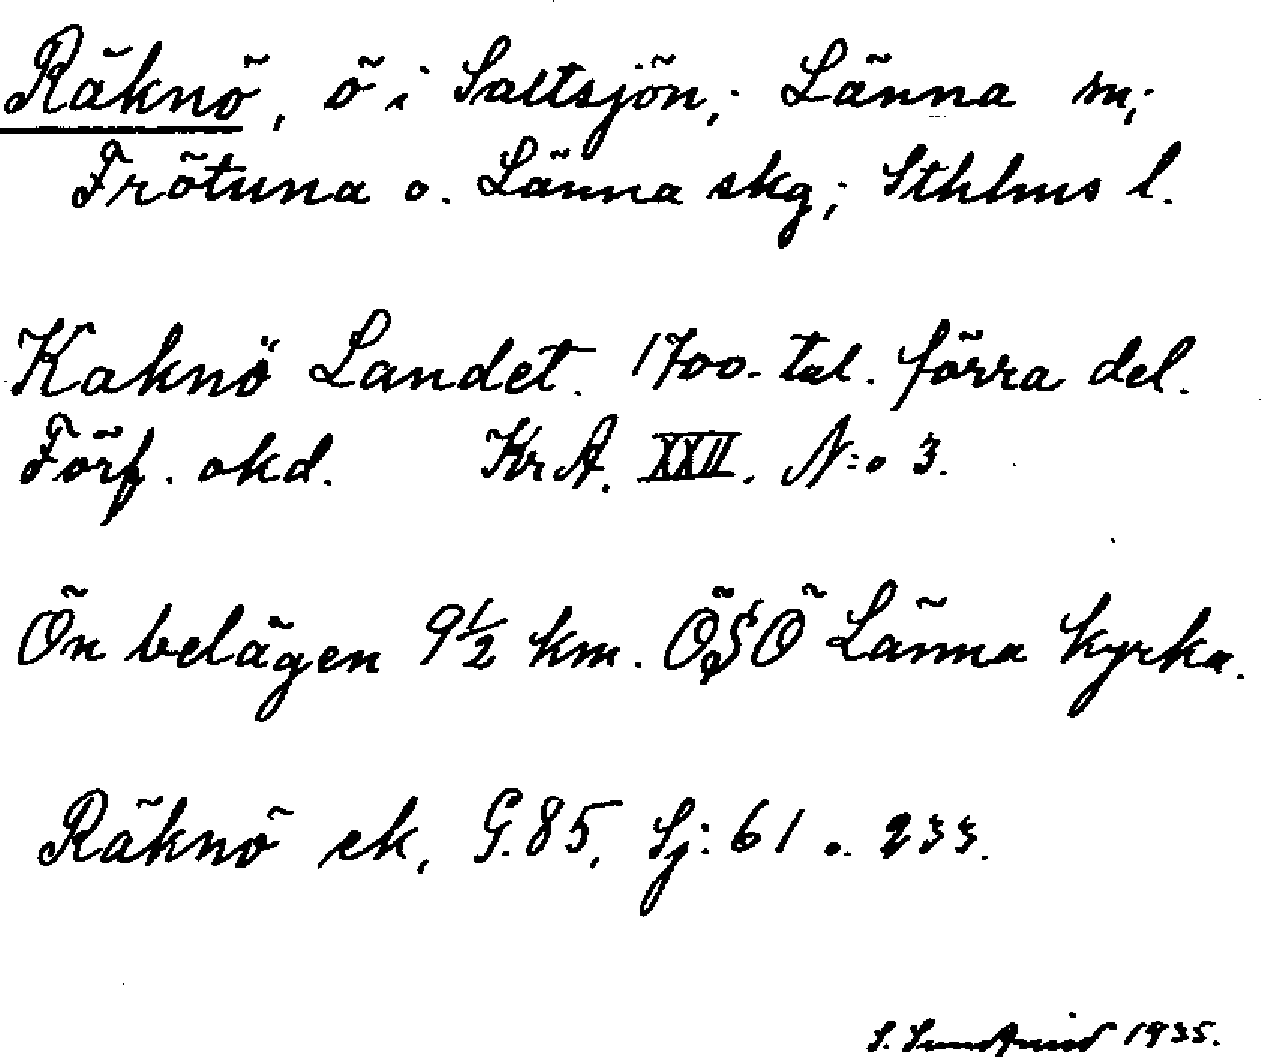 Räknö, ö i Saltsjön; Länna sn;
Frötuna o. Länna skg; Sthlms l.
Kaknö Landet. 1700-tal. förra del.
Förf. okd. KrA. XXII. N:o 3.
Ön belägen 9½ km. ÖSÖ Länna kyrka.
Räknö ek, G. 85, Sj: 61 o. 233.
S. Sundqvist 1935.